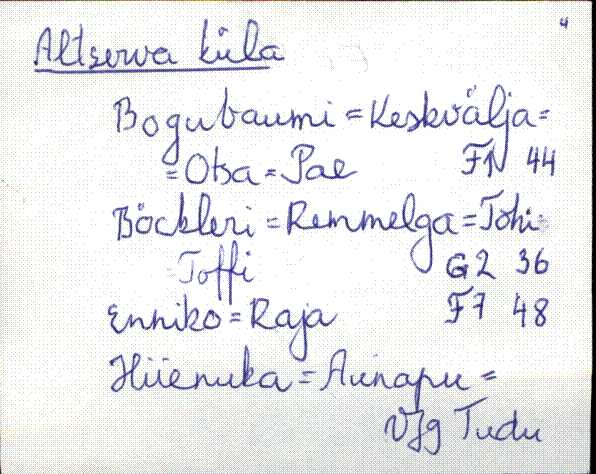 4
Altserva küla
Bogubaumi = Keskvälja =
= Otsa = Pae F1 44
Böckleri = Remmelga = Tohi
Toffi G2 36
Enniko = Raja F7 48
Hiienuka = Aunapu =
Tudu